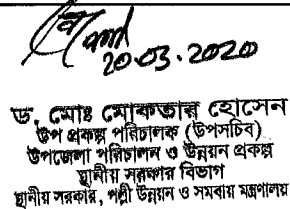 20.03.2020
ড. মোঃ মোকতার হোসেন
উপ প্রকল্প পরিচালক (উপসচিব)
উপজেলা পরিচালন ও উন্নয়ন প্রকল্প
স্থানীয় সরকার বিভাগ
স্থানীয় সরকার, পল্লী উন্নয়ন ও সমবায় মন্ত্রণালয়